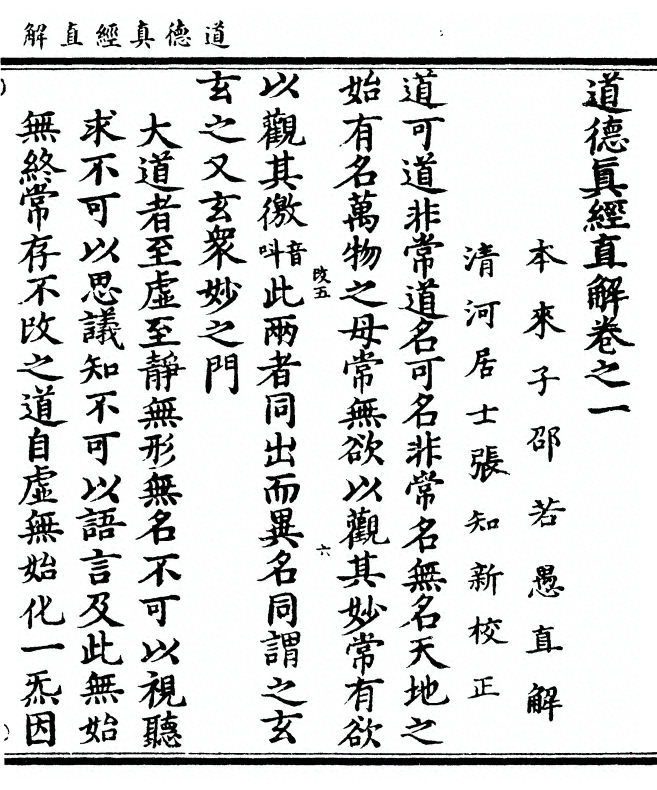 道德真經直解
道德眞經直解卷之一
本來子邵若愚直解
清河居士張知新校正
道可道非常道名可名非常名無名天地之
始有名萬物之母常無欲以觀其妙常有欲
以觀其徼音叫此兩者同出而異名同謂之玄
玄之又玄衆妙之門
大道者至虛至靜無形無名不可以視聽
求不可以思議知不可以語言及此無始
無終常存不改之道自虛無始化一炁因
改五
六